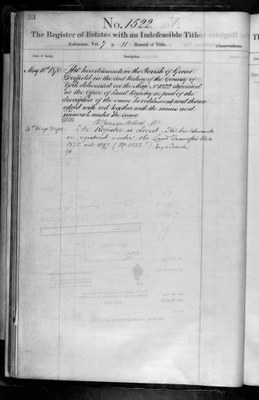 23
No. 1522
The Register of Estates with an Indefeasible Title
Reference. Vol. 7 p. 11 Record of Title.
Date of Entry. Description. Observations.
May 11th 1870 The hereditaments in the Parish of Great
Driffield in the East Riding of the County of
York delineated on the Map No 1522 deposited
in the Office of Land Registry as part of the
description of the same hereditaments and thereon
edged with red together with the mines and
minerals under the same
The Register is closed, the hereditaments
registered under the Land Transfer Acts
1875 and 1897